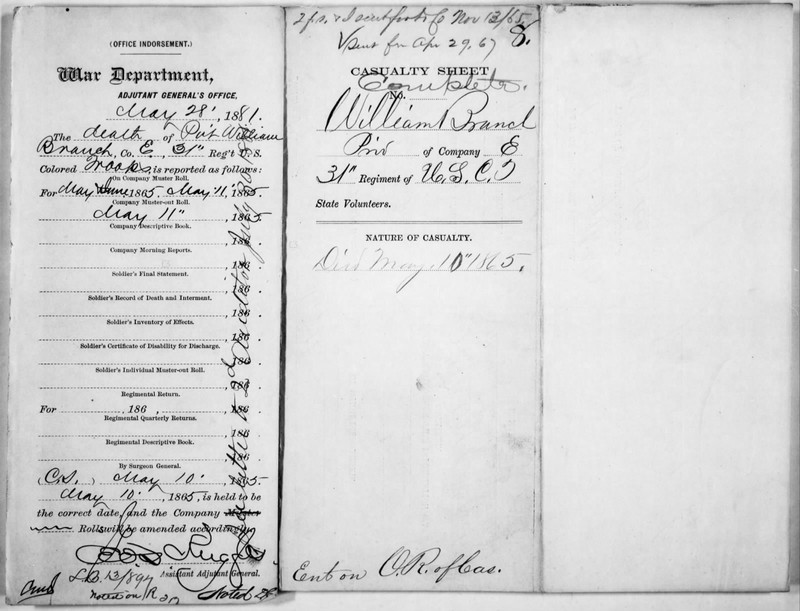 (OFFICE INDORSEMENT.)
War Department,
ADJUTANT GENERAL'S OFFICE,
May 28', 1881.
The death of Pvt William
Branch, Co. E, 31" Reg't U.S.
Colored Troops, is reported as follows:
On Company Muster Roll.
For May & June 1865 May 11', 1865.
Company Muster-out Roll.
May 11", 1865
Company Descriptive Book.
, 186 .
Company Morning Reports.
, 186 .
Soldier's Final Statement.
, 186 .
Soldier's Record of Death and Interment.
, 186 .
Soldier's Inventory of Effects.
, 186 .
Soldier's Certificate of Disability for Discharge.
, 186 .
Soldier's Individual Muster-out Roll.
, 186 .
Regimental Return.
For 186 , , 186 .
Regimental Quarterly Returns.
, 186 .
Regimental Descriptive Book.
, 186 .
By Surgeon General.
(C.S. ) May 10', 1865
May 10', 1865, is held to be
the correct date, and the Company Muster
Rolls will be amended accordingly.
Assistant Adjutant General.
Noted
Nov 13/65
sent for Apr 29, 67
8.
CASUALTY SHEET
Complete.
No.
William Branch
Priv of Company E
31" Regiment of U.S.C.T
State Volunteers.
NATURE OF CASUALTY.
Died May 10" 1865.
Ent on O.R. of Cas.